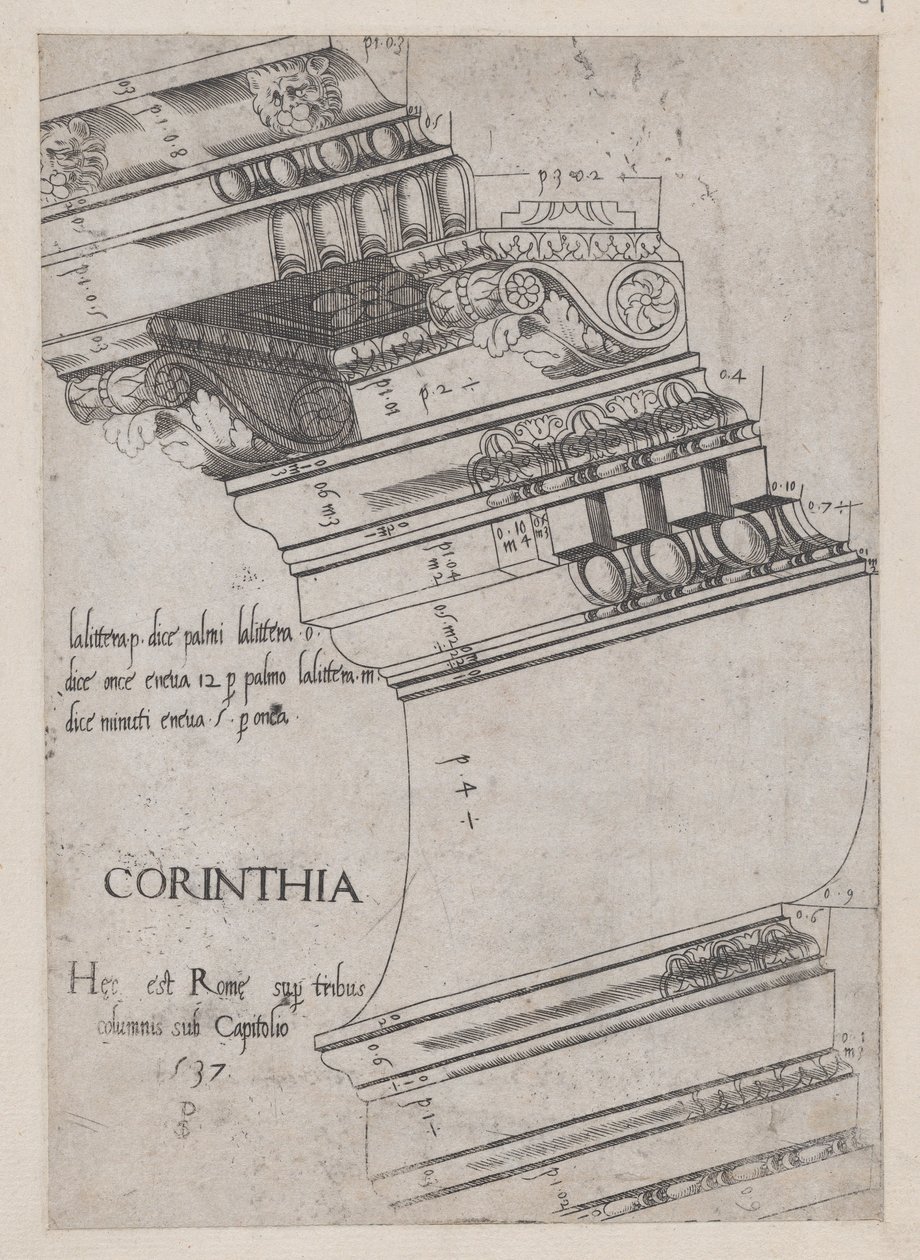 p 1·0·3
03
p·1·0·8
0·5
p 3 0·2
p·1·0·5
03
p1·01
p·2 ÷
0·4
06 m3
0·10
0·7 ÷
0·10
m 4
p1·04
m 2
0·5·m2
lalittera·p· dice palmi lalittera ·o·
dice once eneua 12 p̱ palmo lalittera·m·
dice minuti eneua ·5· p̱ onca·
p·4 ÷
CORINTHIA
0·9
0·6
Hęc est Romę sup̱ tribus
columnis sub Capitolio
537·
02
0·6
0·1
m3
p1 ÷
03
p1·02